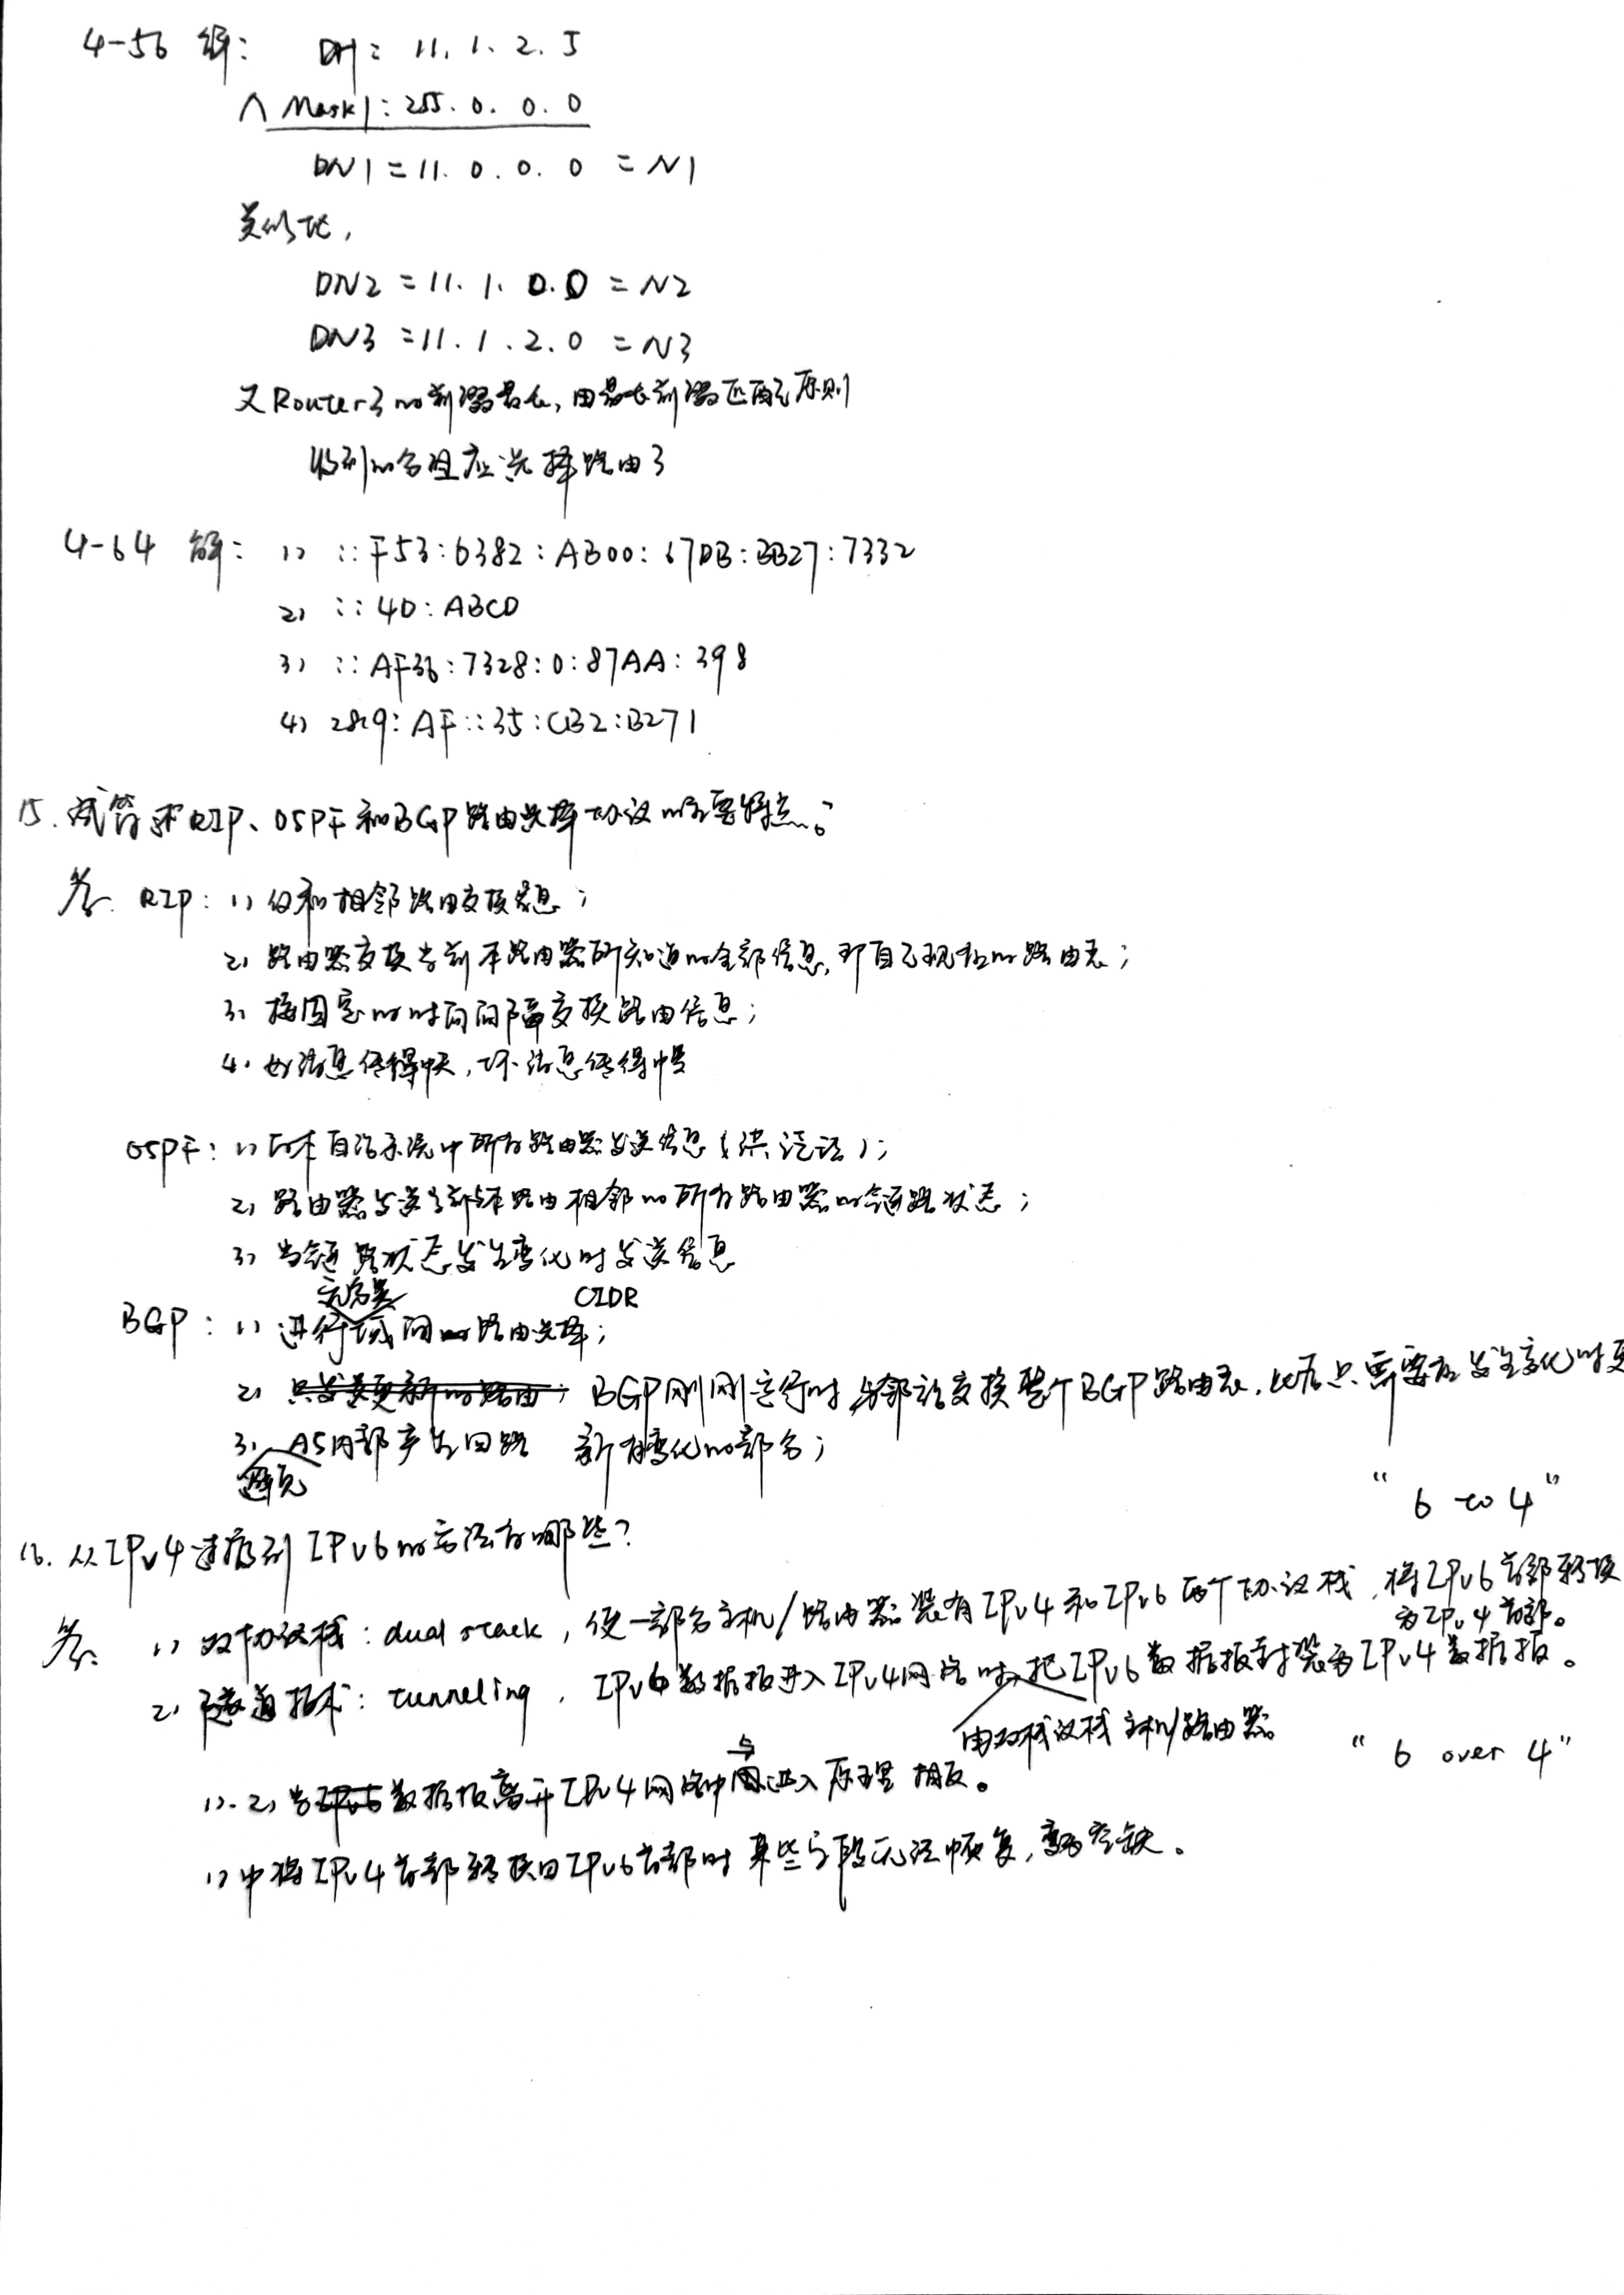 4-56 解: DH: 11. 1. 2. 5
∧ Mask1: 255. 0. 0. 0
DN1 = 11. 0. 0. 0 = N1
类似地,
DN2 = 11. 1. 0. 0 = N2
DN3 = 11. 1. 2. 0 = N3
又Router3的前缀最长, 由最长前缀匹配原则
收到的分组应选择路由3
4-64 解: 1) ::F53:6382:AB00:67DB:BB27:7332
2) ::4D:ABCD
3) ::AF36:7328:0:87AA:398
4) 2819:AF::35:CB2:B271
15. 试简述RIP、OSPF和BGP路由选择协议的主要特点。
答. RIP: 1) 仅和相邻路由交换信息;
2) 路由器交换当前本路由器所知道的全部信息, 即自己现在的路由表;
3) 按固定的时间间隔交换路由信息;
4. 好消息传得快, 坏消息传得慢
OSPF: 1) 向本自治系统中所有路由器发送信息 (洪泛法);
2) 路由器发送当前与本路由相邻的所有路由器的链路状态;
3) 当链路状态发生变化时发送信息
无分类 CIDR
BGP: 1) 进行域间的路由选择;
2) 只发送更新的路由; BGP刚刚运行时与邻站交换整个BGP路由表, 此后只需要在发生变化时更
3. AS内部产生回路 新有变化的部分;
避免
"6 to 4"
16. 从IPv4过渡到IPv6的方法有哪些?
答. 1) 双协议栈: dual stack, 使一部分主机/路由器装有IPv4和IPv6两个协议栈, 将IPv6首部转换
为IPv4首部。
2) 隧道技术: tunneling, IPv6数据报进入IPv4网络时, 把IPv6数据报封装为IPv4数据报。
由双协议栈主机/路由器
"6 over 4"
与
1). 2) 当IPv6数据报离开IPv4网络中 进入原理相反。
1)中将IPv4首部转换回IPv6首部时某些字段无法恢复, 变为空缺。